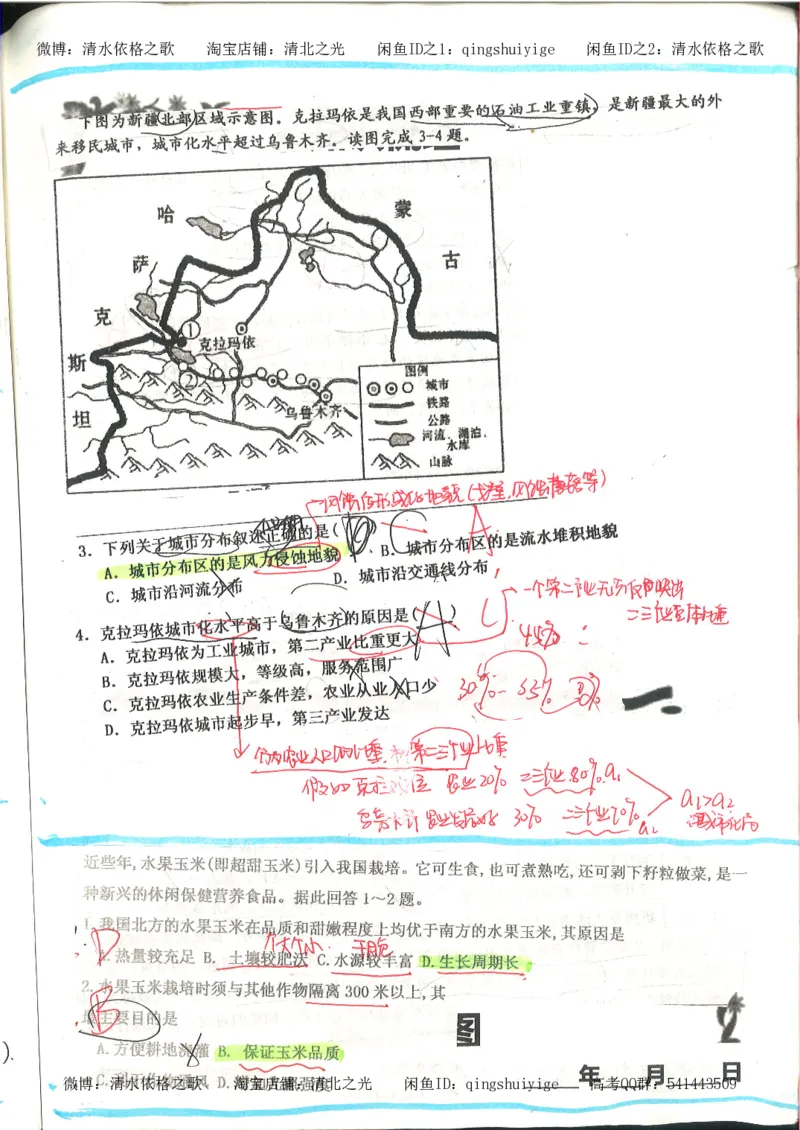 微博：清水依格之歌 淘宝店铺：清北之光 闲鱼ID之1：qingshuiyige 闲鱼ID之2：清水依格之歌
下图为新疆北部区域示意图。克拉玛依是我国西部重要的石油工业重镇，是新疆最大的外
来移民城市，城市化水平超过乌鲁木齐。读图完成 3-4 题。
哈
萨
克
斯
坦
蒙
古
①
克拉玛依
②
乌鲁木齐
图例
城市
铁路
公路
河流、湖泊、
水库
山脉
3．下列关于城市分布叙述正确的是（ ）
A．城市分布区的是风力侵蚀地貌 B．城市分布区的是流水堆积地貌
C．城市沿河流分布 D．城市沿交通线分布
C
A
4．克拉玛依城市化水平高于乌鲁木齐的原因是（ A ）
A．克拉玛依为工业城市，第二产业比重更大
B．克拉玛依规模大，等级高，服务范围广
C．克拉玛依农业生产条件差，农业从业人口少
D．克拉玛依城市起步早，第三产业发达
农业20% 二三产业80% a₁
30% 二三产业70% a₂
a₁>a₂
近些年，水果玉米（即超甜玉米）引入我国栽培。它可生食，也可煮熟吃，还可剥下籽粒做菜，是一
种新兴的休闲保健营养食品。据此回答 1～2 题。
1. 我国北方的水果玉米在品质和甜嫩程度上均优于南方的水果玉米，其原因是
D
热量较充足 B. 土壤较肥沃 C.水源较丰富 D.生长周期长
2. 水果玉米栽培时须与其他作物隔离 300 米以上，其
主要目的是
B
A.方便耕地灌溉 B. 保证玉米品质
图
2
年 月 日
微博：清水依格之歌 淘宝店铺：清北之光 闲鱼ID：qingshuiyige 高考QQ群：541443509